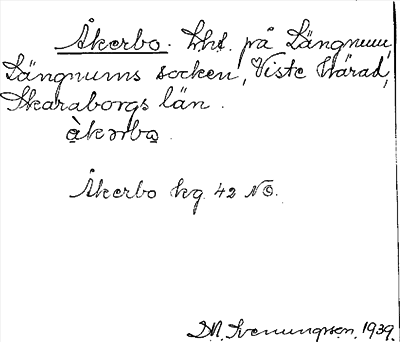 Åkerbo. Lht. på Längnum
Längnums socken, Viste Härad,
Skaraborgs län.
àkərbo̱.
Åkerbo kg. 42 NO.
D.N. Svenungsson. 1939.